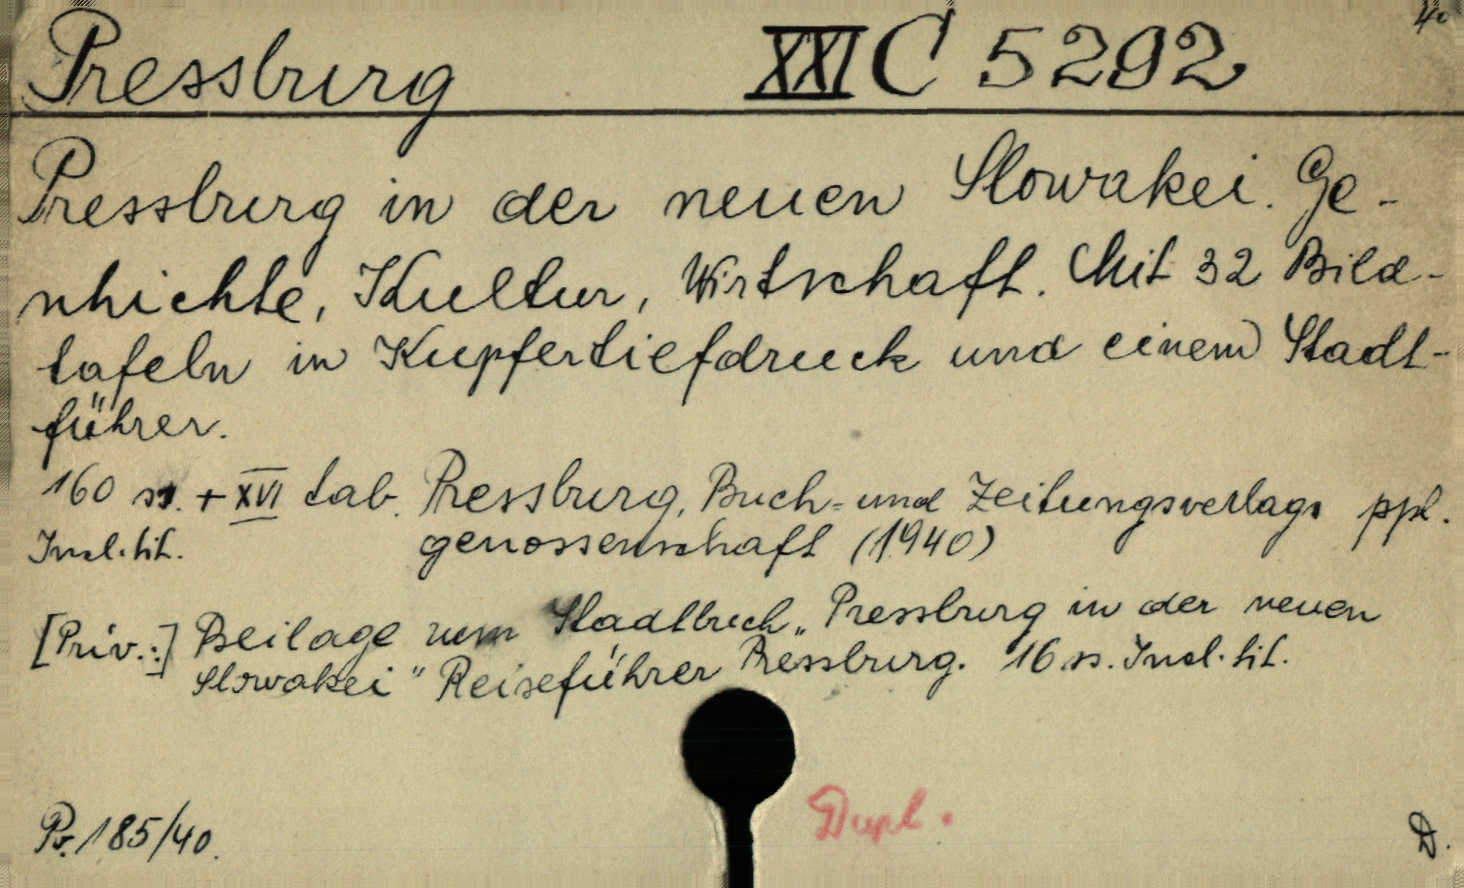 4o
Pressburg XXI C 5292
Pressburg in der neuen Slowakei. Ge-
schichte, Kultur, Wirtschaft. Mit 32 Bild-
tafeln in Kupfertiefdruck und einem Stadt-
führer.
160 ss. + XVI tab. Pressburg, Buch- und Zeitungsverlags ppl.
Incl. tit. genossenschaft (1940)
[Priv.:] Beilage zum Stadtbuch „Pressburg in der neuen
Slowakei" Reiseführer Pressburg. 16 ss. Incl. tit.
Pr. 185/40.
Dupl.
D.